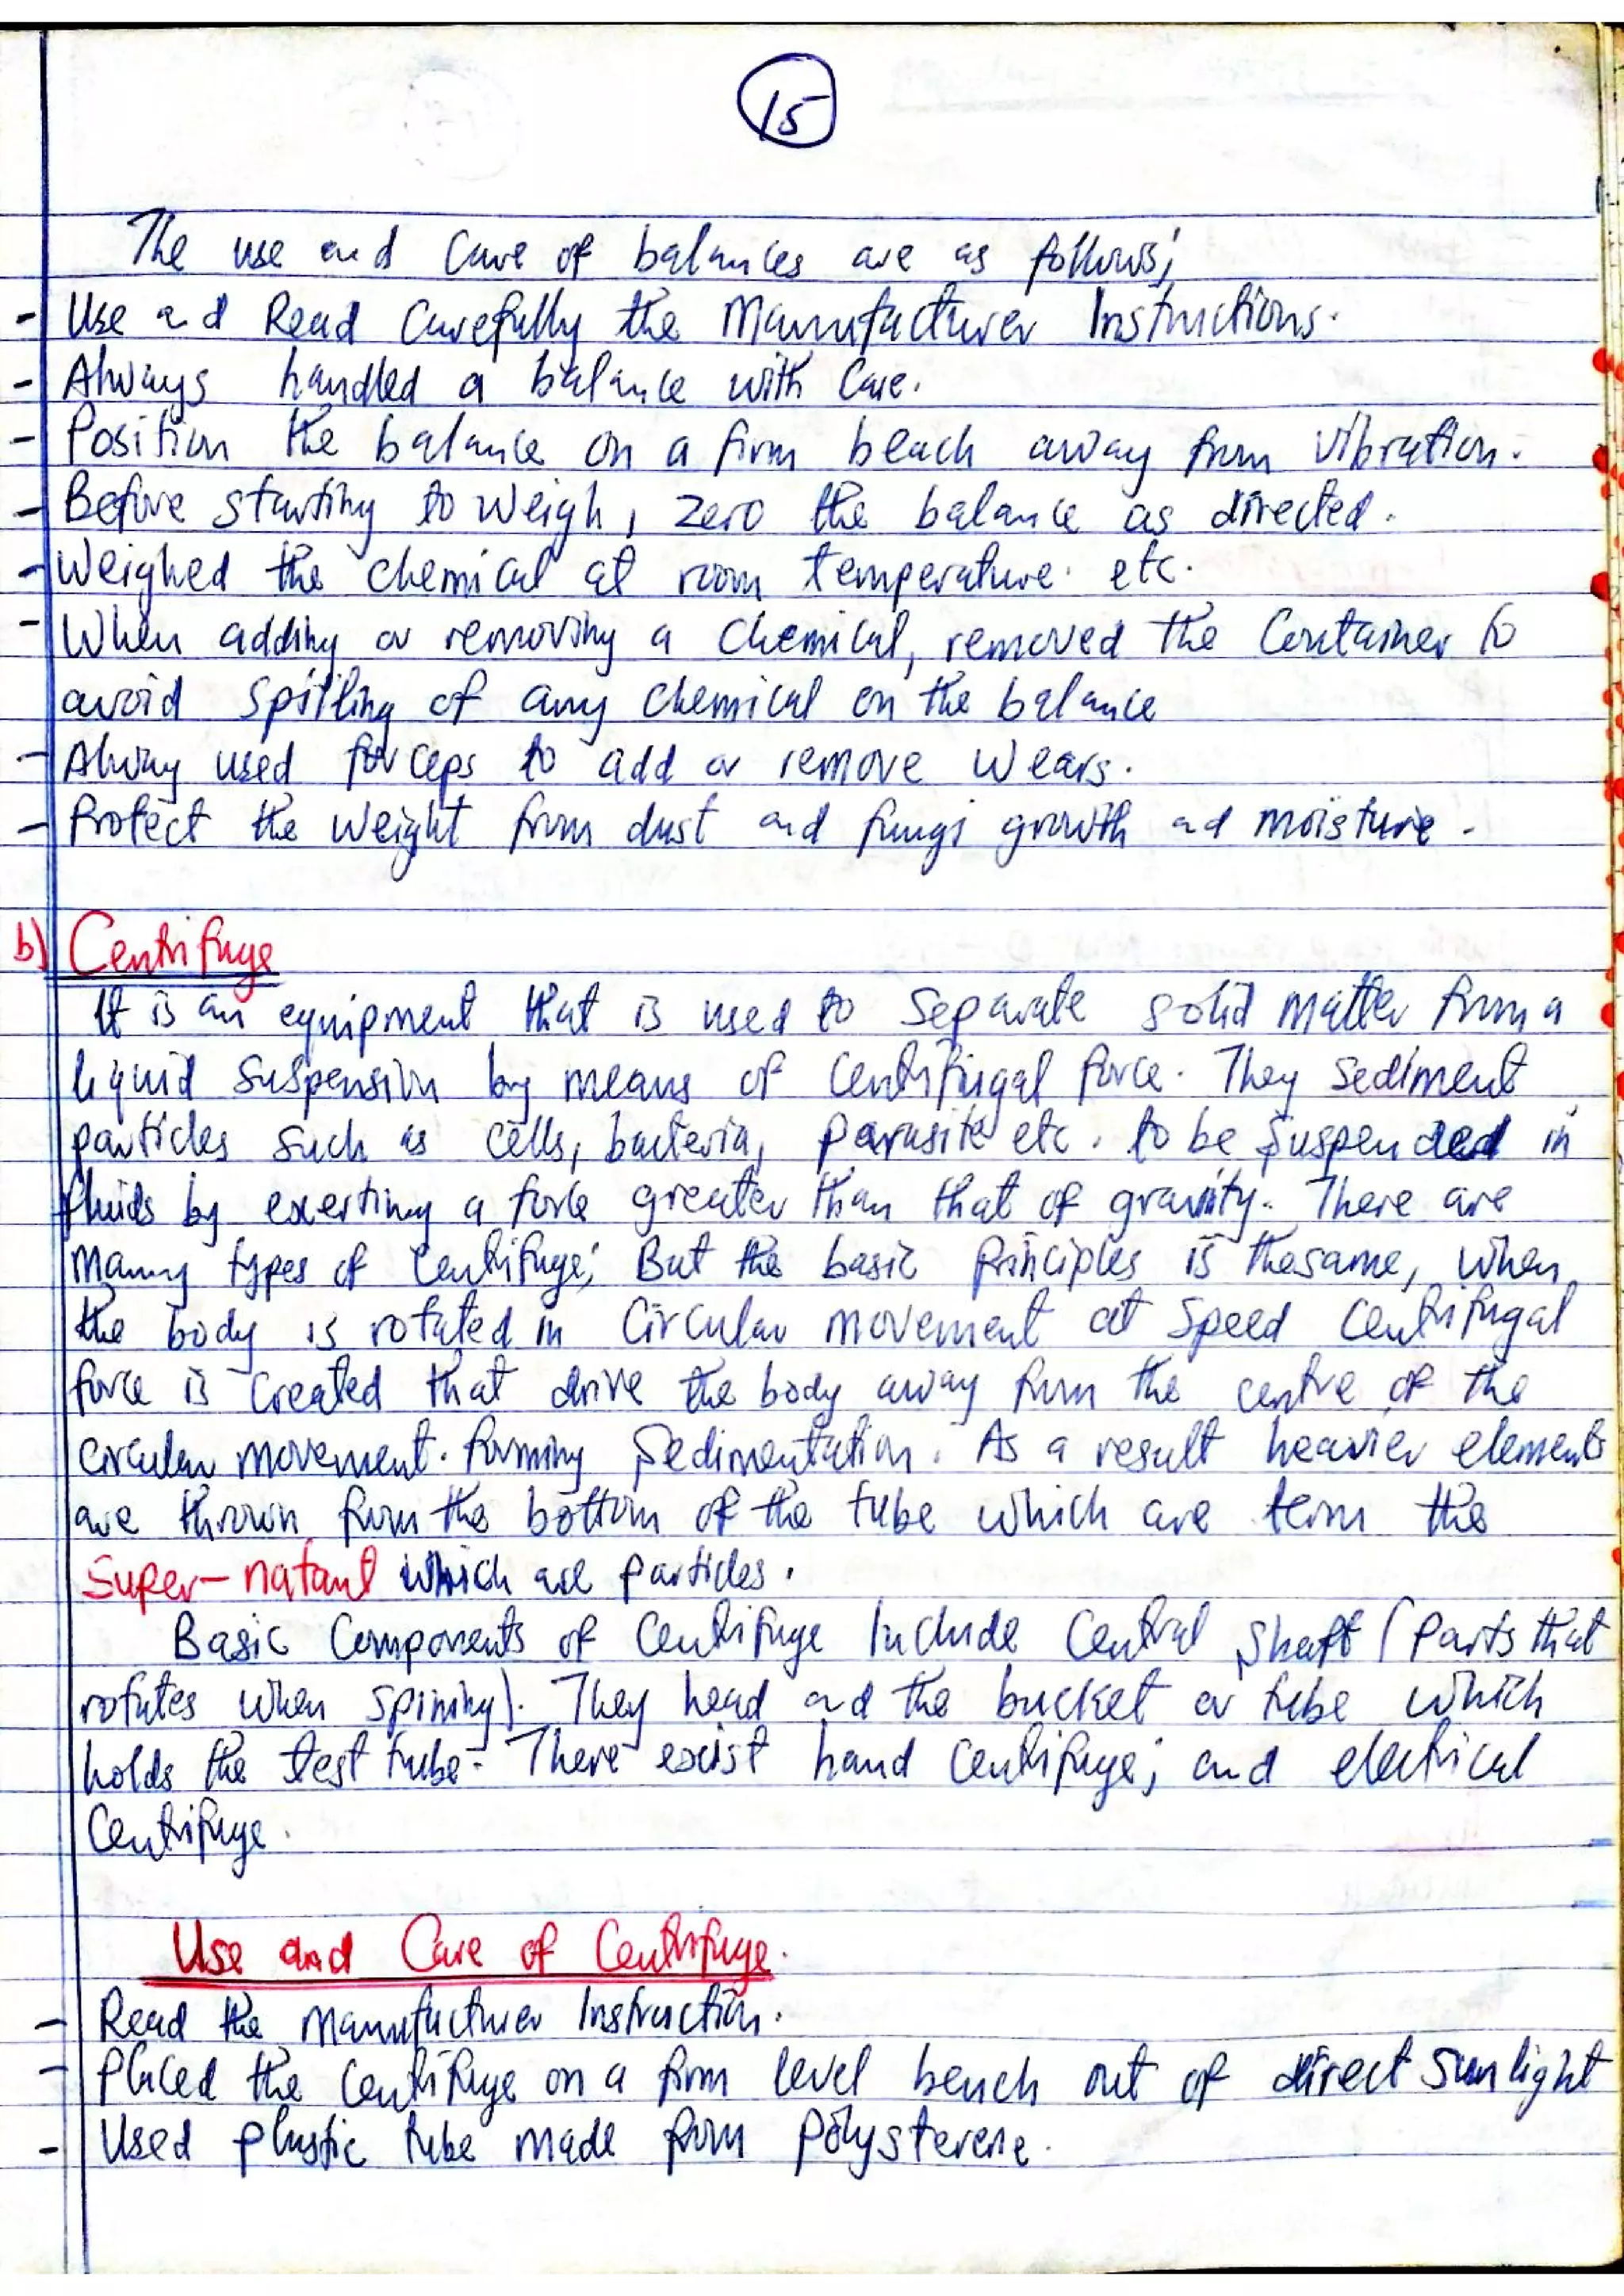 15
The use and Care of balances are as follows;
- Use and Read Carefully the Manufacturer Instructions.
- Always handled a balance with Care.
- Position the balance on a firm beach away from Vibration.
- Before starting to weigh, zero the balance as directed.
- Weighed the chemical at room temperature. etc.
- When adding or removing a chemical, removed the Container to
avoid spilling of any chemical on the balance
- Alway used forceps to add or remove wears.
- Protect the weight from dust and fungi growth ad moisture.
b) Centrifuge
It is an equipment that is used to Separate solid matter from a
liquid suspension by means of Centrifugal force. They Sediment
particles such as cells, bacteria, parasite etc. to be suspended in
fluids by exerting a force greater than that of gravity. There are
many types of Centrifuge; But the basic principles is thesame, when
the body is rotated in Circular movement at speed Centrifugal
force is created that drive the body away from the centre of the
circular movement. forming Sedimentation. As a result heavier elements
are thrown from the bottom of the tube which are term the
Super-natant which are particles.
Basic Components of Centrifuge Include Central Shaft (Parts that
rotates when spining). They head and the bucket or tube which
holds the test tube. There exist hand Centrifuge; and electrical
Centrifuge.
Use and Care of Centrifuge.
- Read the Manufacturer Instruction.
- Placed the Centrifuge on a firm level bench out of direct Sunlight
- Used plastic tube made from polysterene.